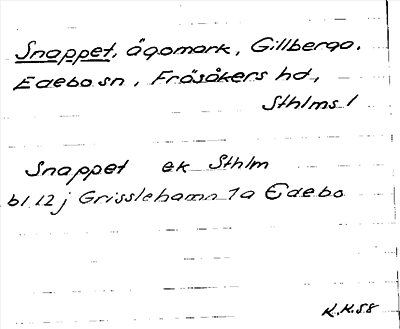 Snappet, ägomark, Gillberga.
Edebo sn, Frösåkers hd,
Sthlms l
Snappet ek Sthlm
bl 12 j Grisslehamn 1a Edebo
K.K.58